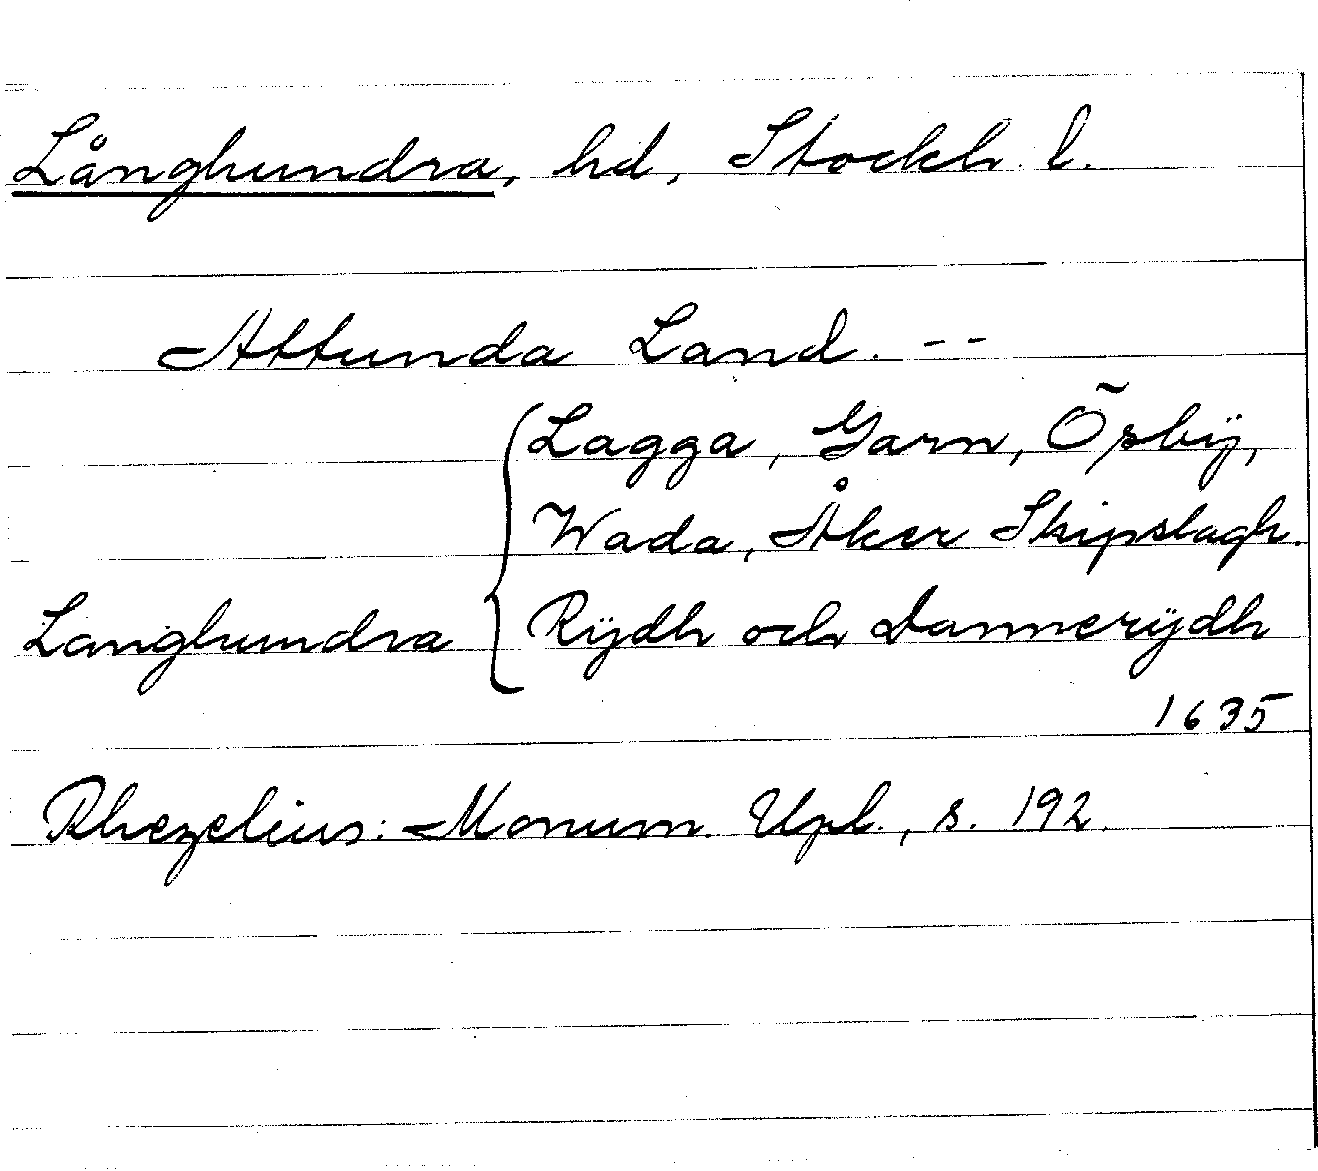 Långhundra, hd, Stockh. l.
Attunda Land. --
Lagga, Garn, Õsbÿ,
Wada, Åker Skipslagh.
Langhundra { Rÿdh och Dannerÿdh
1635
Rhezelius: Monum. Upl., s. 192.